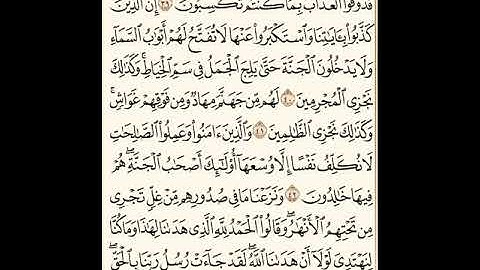 فَذُوقُوا۟ ٱلْعَذَابَ بِمَا كُنتُمْ تَكْسِبُونَ ٣٩ إِنَّ ٱلَّذِينَ
كَذَّبُوا۟ بِـَٔايَـٰتِنَا وَٱسْتَكْبَرُوا۟ عَنْهَا لَا تُفَتَّحُ لَهُمْ أَبْوَٰبُ ٱلسَّمَآءِ
وَلَا يَدْخُلُونَ ٱلْجَنَّةَ حَتَّىٰ يَلِجَ ٱلْجَمَلُ فِى سَمِّ ٱلْخِيَاطِ ۚ وَكَذَٰلِكَ
نَجْزِى ٱلْمُجْرِمِينَ ٤٠ لَهُم مِّن جَهَنَّمَ مِهَادٌ وَمِن فَوْقِهِمْ غَوَاشٍ ۚ
وَكَذَٰلِكَ نَجْزِى ٱلظَّـٰلِمِينَ ٤١ وَٱلَّذِينَ ءَامَنُوا۟ وَعَمِلُوا۟ ٱلصَّـٰلِحَـٰتِ
لَا نُكَلِّفُ نَفْسًا إِلَّا وُسْعَهَآ أُو۟لَـٰٓئِكَ أَصْحَـٰبُ ٱلْجَنَّةِ ۖ هُمْ
فِيهَا خَـٰلِدُونَ ٤٢ وَنَزَعْنَا مَا فِى صُدُورِهِم مِّنْ غِلٍّ تَجْرِى
مِن تَحْتِهِمُ ٱلْأَنْهَـٰرُ ۖ وَقَالُوا۟ ٱلْحَمْدُ لِلَّهِ ٱلَّذِى هَدَىٰنَا لِهَـٰذَا وَمَا كُنَّا
لِنَهْتَدِىَ لَوْلَآ أَنْ هَدَىٰنَا ٱللَّهُ ۖ لَقَدْ جَآءَتْ رُسُلُ رَبِّنَا بِٱلْحَقِّ ۖ